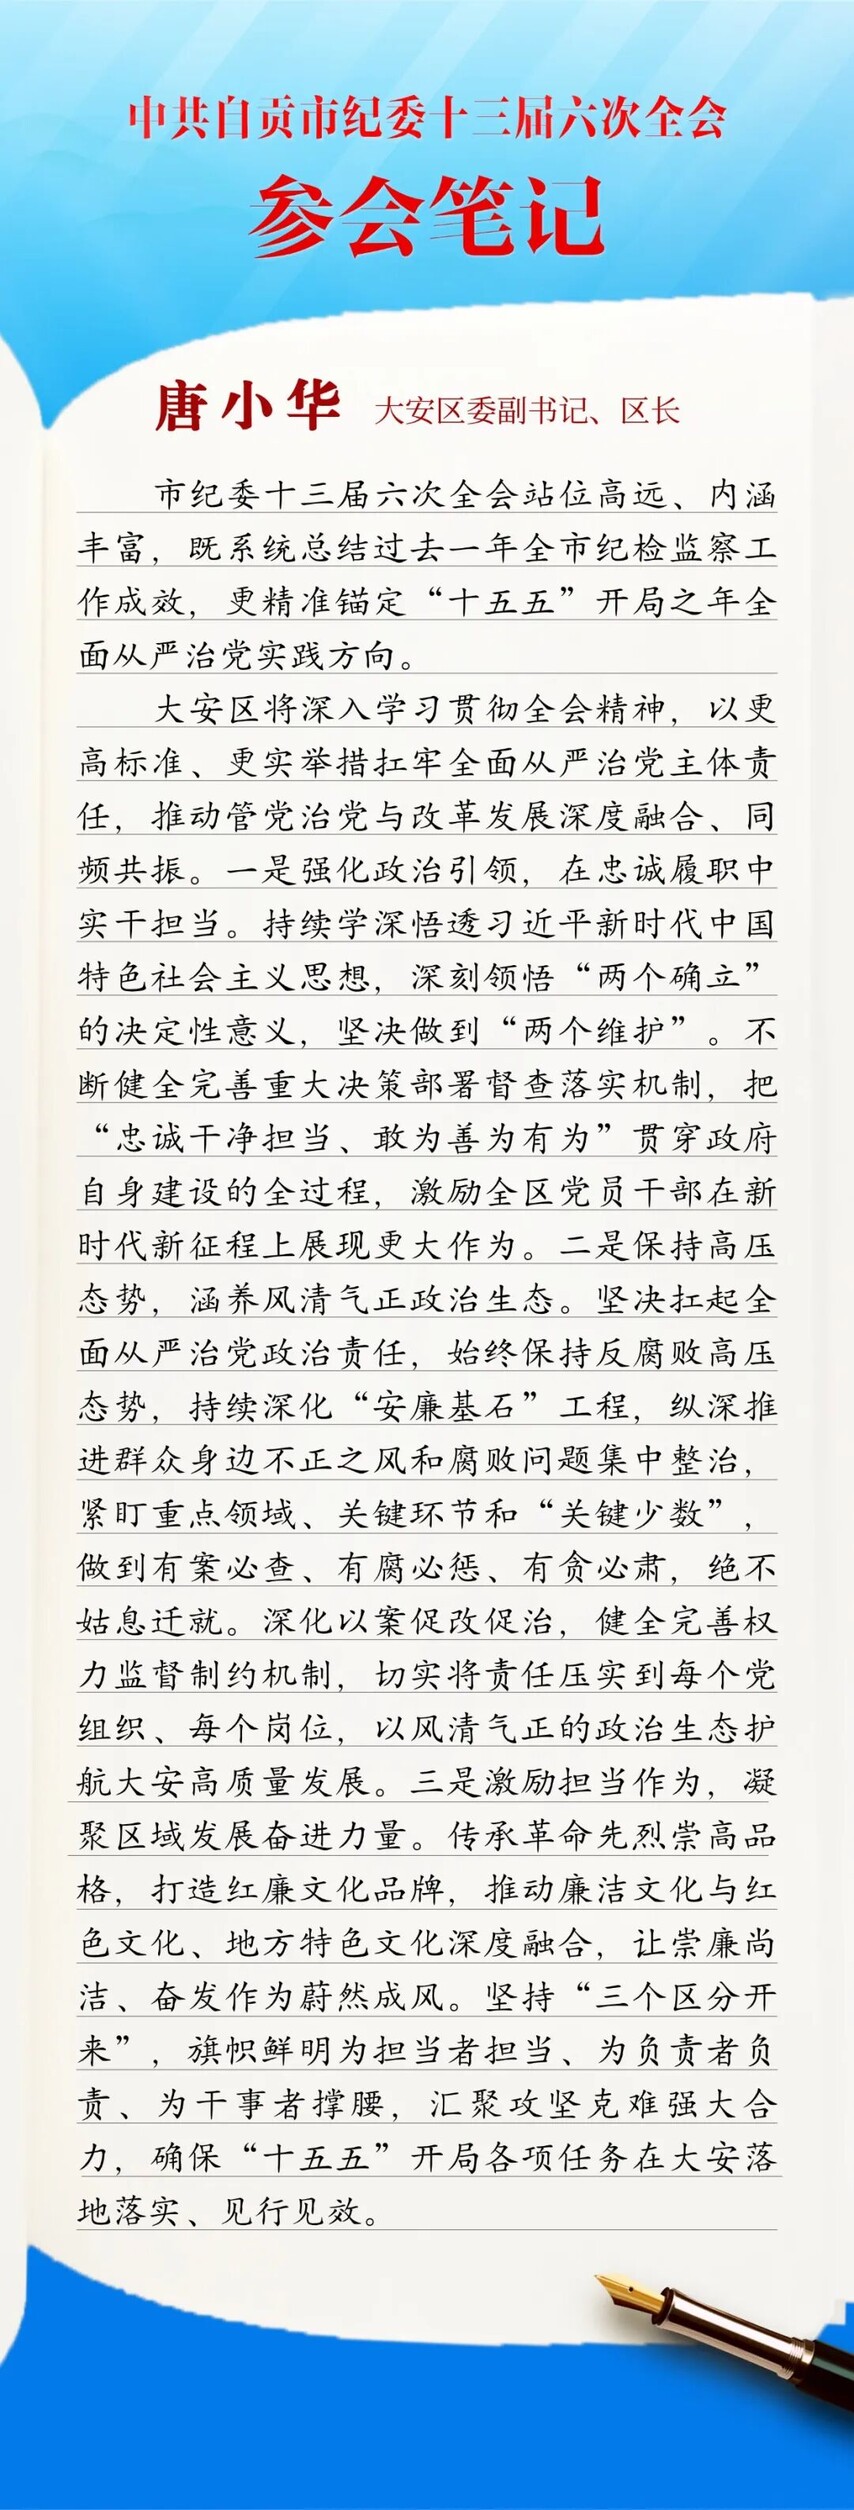 中共自贡市纪委十三届六次全会
参会笔记
唐小华 大安区委副书记、区长
市纪委十三届六次全会站位高远、内涵
丰富，既系统总结过去一年全市纪检监察工
作成效，更精准锚定“十五五”开局之年全
面从严治党实践方向。
大安区将深入学习贯彻全会精神，以更
高标准、更实举措扛牢全面从严治党主体责
任，推动管党治党与改革发展深度融合、同
频共振。一是强化政治引领，在忠诚履职中
实干担当。持续学深悟透习近平新时代中国
特色社会主义思想，深刻领悟“两个确立”
的决定性意义，坚决做到“两个维护”。不
断健全完善重大决策部署督查落实机制，把
“忠诚干净担当、敢为善为有为”贯穿政府
自身建设的全过程，激励全区党员干部在新
时代新征程上展现更大作为。二是保持高压
态势，涵养风清气正政治生态。坚决扛起全
面从严治党政治责任，始终保持反腐败高压
态势，持续深化“安廉基石”工程，纵深推
进群众身边不正之风和腐败问题集中整治，
紧盯重点领域、关键环节和“关键少数”，
做到有案必查、有腐必惩、有贪必肃，绝不
姑息迁就。深化以案促改促治，健全完善权
力监督制约机制，切实将责任压实到每个党
组织、每个岗位，以风清气正的政治生态护
航大安高质量发展。三是激励担当作为，凝
聚区域发展奋进力量。传承革命先烈崇高品
格，打造红廉文化品牌，推动廉洁文化与红
色文化、地方特色文化深度融合，让崇廉尚
洁、奋发作为蔚然成风。坚持“三个区分开
来”，旗帜鲜明为担当者担当、为负责者负
责、为干事者撑腰，汇聚攻坚克难强大合
力，确保“十五五”开局各项任务在大安落
地落实、见行见效。